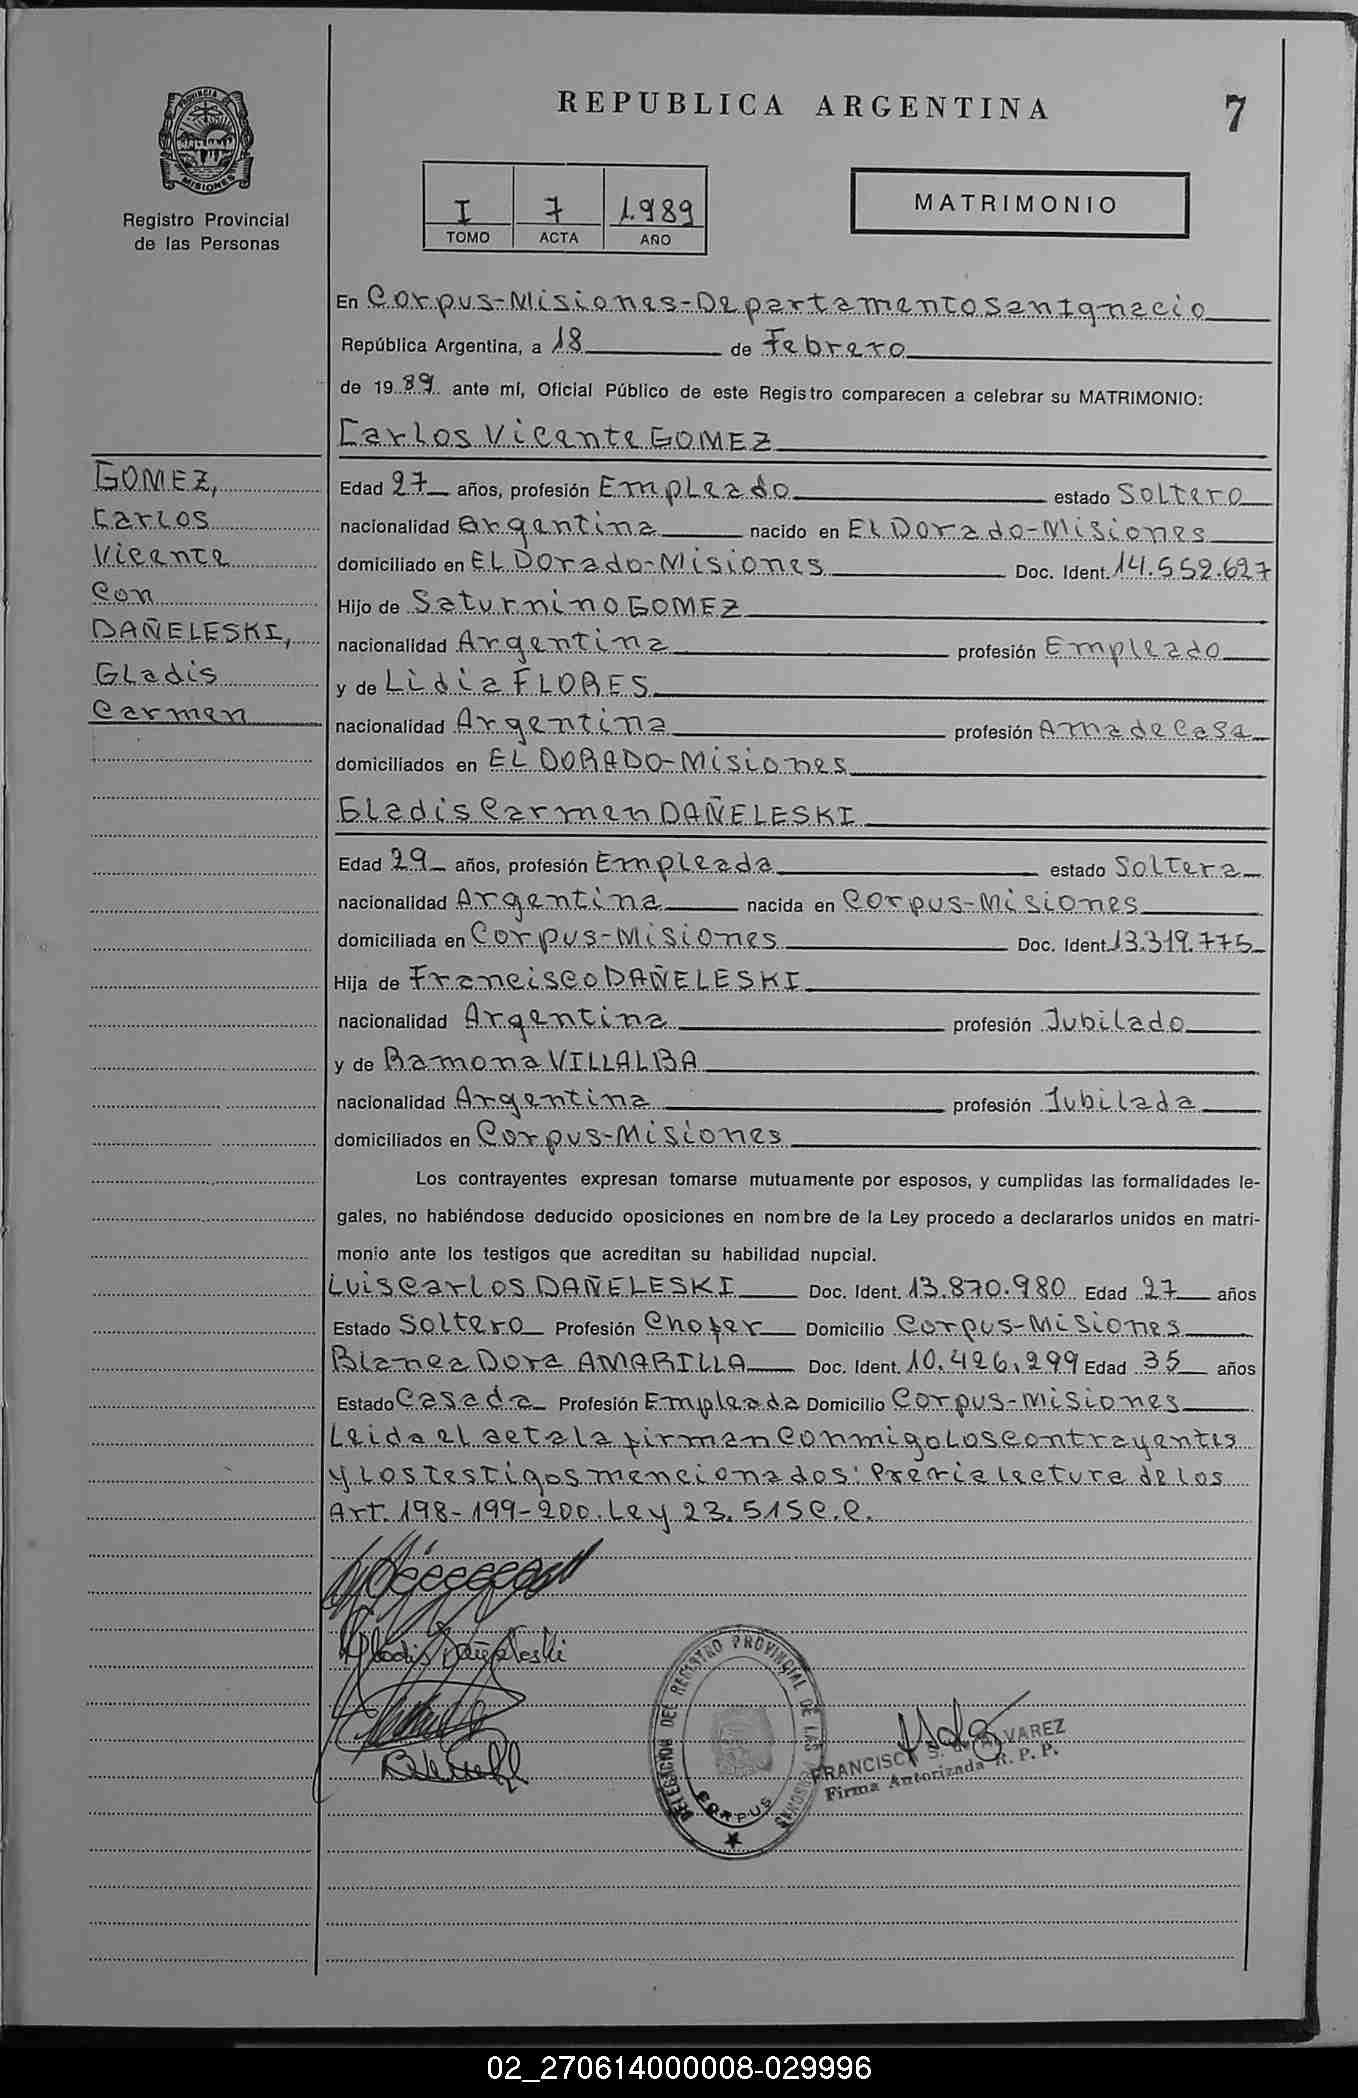 REPUBLICA ARGENTINA
7
PROVINCIA DE
MISIONES
Registro Provincial
de las Personas
I 7 1.989
TOMO ACTA AÑO
MATRIMONIO
En Corpus-Misiones-Departamento San Ignacio
República Argentina, a 18 de Febrero
de 19 89 ante mí, Oficial Público de este Registro comparecen a celebrar su MATRIMONIO:
Carlos Vicente GOMEZ
GOMEZ,
Carlos
Vicente
Con
DAÑELESKI,
Gladis
Carmen
Edad 27 años, profesión Empleado estado Soltero
nacionalidad argentina nacido en El Dorado-Misiones
domiciliado en El Dorado-Misiones Doc. Ident. 14.552.627
Hijo de Saturnino GOMEZ
nacionalidad Argentina profesión Empleado
y de Lidia FLORES
nacionalidad Argentina profesión Ama de Casa
domiciliados en EL DORADO-Misiones
Gladis Carmen DAÑELESKI
Edad 29 años, profesión Empleada estado Soltera
nacionalidad Argentina nacida en Corpus-Misiones
domiciliada en Corpus-Misiones Doc. Ident. 13.319.775
Hija de Francisco DAÑELESKI
nacionalidad Argentina profesión Jubilado
y de Ramona VILLALBA
nacionalidad Argentina profesión Jubilada
domiciliados en Corpus-Misiones
Los contrayentes expresan tomarse mutuamente por esposos, y cumplidas las formalidades le-
gales, no habiéndose deducido oposiciones en nombre de la Ley procedo a declararlos unidos en matri-
monio ante los testigos que acreditan su habilidad nupcial.
Luis Carlos DAÑELESKI Doc. Ident. 13.870.980 Edad 27 años
Estado Soltero Profesión Chofer Domicilio Corpus-Misiones
Blanca Dora AMARILLA Doc. Ident. 10.426.299 Edad 35 años
Estado Casada Profesión Empleada Domicilio Corpus-Misiones
Leida el acta la firman conmigo los contrayentes
y los testigos mencionados: Previa lectura de los
Art. 198-199-200. Ley 23.515 C.C.
Gladis Dañeleski
DELEGACION DEL REGISTRO PROVINCIAL DE LAS PERSONAS
CORPUS
FRANCISCA S. de ALVAREZ
Firma Autorizada R. P. P.
02_270614000008-029996